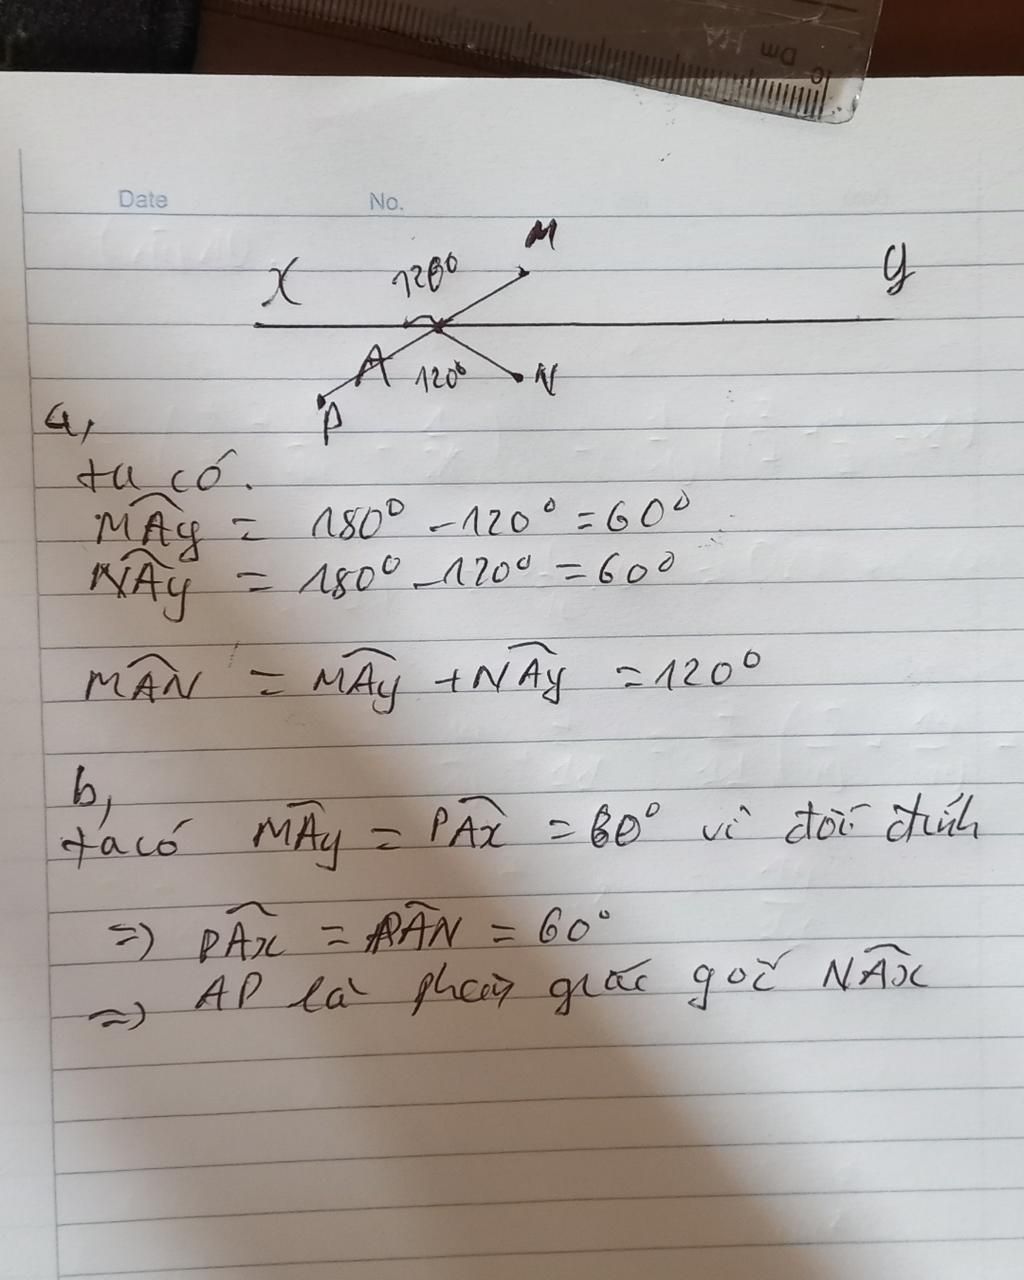 Dm
10
Date No.
M
x 120° y
A 120° N
P
a,
ta có.
MAy = 180° - 120° = 60°
NAy = 180° - 120° = 60°
MAN = MAy + NAy = 120°
b,
ta có MAy = PAx = 60° vì đối đỉnh
=> PAx = PAN = 60°
=> AP là phân giác gốc NAx